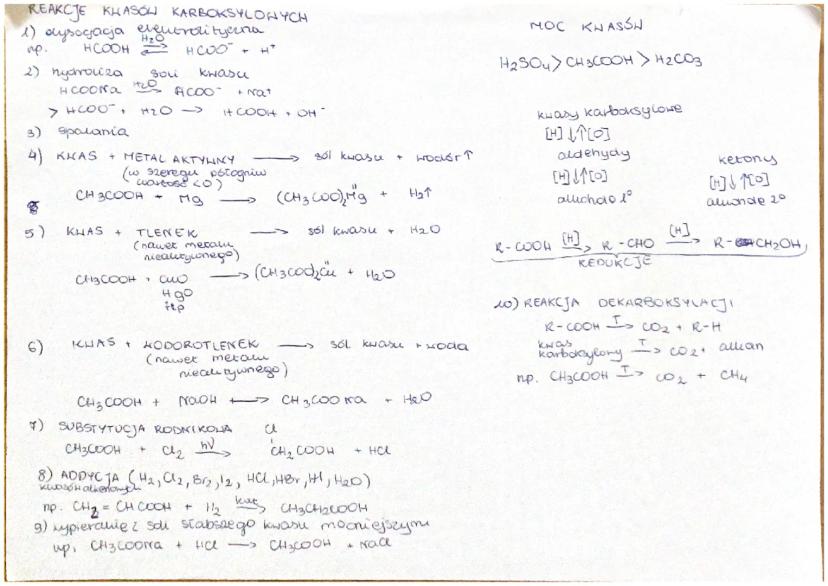 REAKCJE KWASÓW KARBOKSYLOWYCH
1) dysocjacja elektrolityczna
np. HCOOH ⇌ (H2O) HCOO⁻ + H⁺
2) hydroliza soli kwasu
HCOONa →(H2O) HCOO⁻ + Na⁺
> HCOO⁻ + H2O → HCOOH + OH⁻
3) spalania
4) KWAS + METAL AKTYWNY → sól kwasu + wodór↑
(w szeregu
wartość <0)
CH3COOH + Mg → (CH3COO)2Mg + H2↑
5) KWAS + TLENEK → sól kwasu + H2O
(nawet metalu
nieaktywnego)
CH3COOH + CuO → (CH3COO)2Cu + H2O
HgO
itp
6) KWAS + WODOROTLENEK → sól kwasu + woda
(nawet metalu
nieaktywnego)
CH3COOH + NaOH → CH3COONa + H2O
7) SUBSTYTUCJA RODNIKOWA
Cl
CH3COOH + Cl2 →(hν) CH2COOH + HCl
8) ADDYCJA (H2, Cl2, Br2, I2, HCl, HBr, HI, H2O)
np. CH2=CHCOOH + H2 →(kat) CH3CH2COOH
9) wypieranie z soli słabszego kwasu mocniejszym
np. CH3COONa + HCl → CH3COOH + NaCl
MOC KWASÓW
H2SO4 > CH3COOH > H2CO3
kwasy karboksylowe
[H] ↓↑ [O]
aldehydy
[H] ↓↑ [O]
alkohole 1°
ketony
[H] ↓↑ [O]
alkohole 2°
R-COOH →[H] R-CHO →[H] R-CH2OH
REDUKCJE
10) REAKCJA DEKARBOKSYLACJI
R-COOH →(T) CO2 + R-H
kwas
karboksylowy →(T) CO2 + alkan
np. CH3COOH →(T) CO2 + CH4